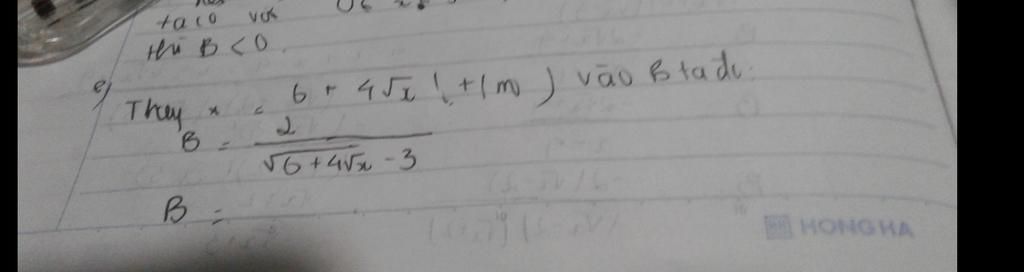 ta có với
thì B < 0.
e)
Thay x = 6 + 4√x (t/m) vào B ta đc:
B = 2 / √6+4√x - 3
B =
HONG HA